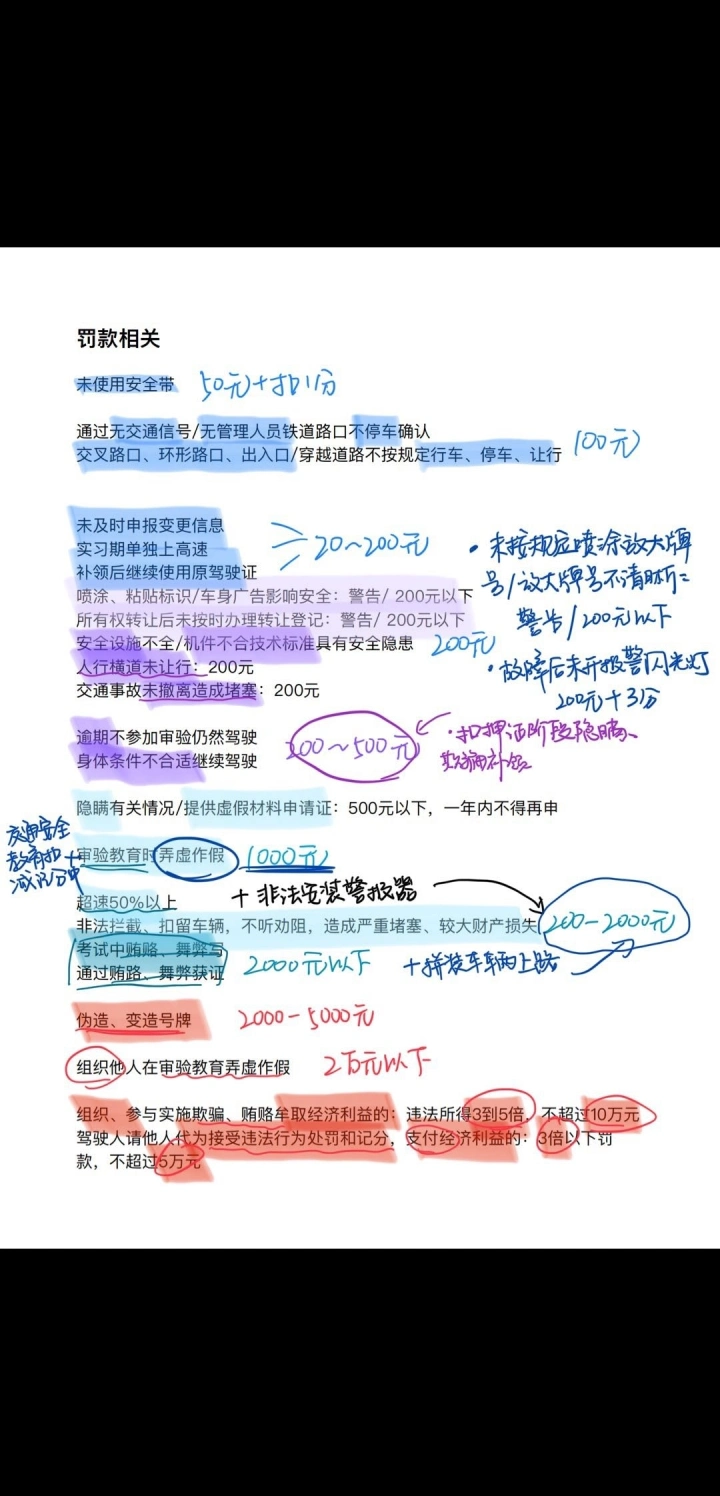 罚款相关
未使用安全带 50元+扣1分
通过无交通信号/无管理人员铁道路口不停车确认
交叉路口、环形路口、出入口/穿越道路不按规定行车、停车、让行 100元
未及时申报变更信息
实习期单独上高速
补领后继续使用原驾驶证
20~200元
·未按规定喷涂放大牌
号/放大牌号不清晰:
警告/200元以下
喷涂、粘贴标识/车身广告影响安全：警告/ 200元以下
所有权转让后未按时办理转让登记：警告/ 200元以下
安全设施不全/机件不合技术标准具有安全隐患 200元
人行横道未让行：200元
交通事故未撤离造成堵塞：200元
·故障后未开报警闪光灯
200元+3分
逾期不参加审验仍然驾驶
身体条件不合适继续驾驶
200~500元
·扣押证阶段隐瞒、
补领
隐瞒有关情况/提供虚假材料申请证：500元以下，一年内不得再申
交通安全
教育扣
减记分中
+
审验教育时弄虚作假 1000元
超速50%以上 +非法安装警报器
非法拦截、扣留车辆，不听劝阻，造成严重堵塞、较大财产损失 200-2000元
考试中贿赂、舞弊写
通过贿路、舞弊获证 2000元以下 +拼装车车辆上路
伪造、变造号牌 2000-5000元
组织他人在审验教育弄虚作假 2万元以下
组织、参与实施欺骗、贿赂牟取经济利益的：违法所得3到5倍，不超过10万元
驾驶人请他人代为接受违法行为处罚和记分，支付经济利益的：3倍以下罚
款，不超过5万元